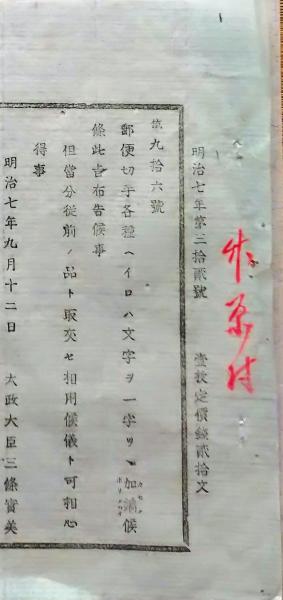 明治七年第三拾貳號　壹枚定價錢貳拾文
第九拾六號
郵便切手各種ヘイロハ文字ヲ一字ツヽ加鐫候
條此旨布告候事
但當分從前ノ品ト取交セ相用候儀ト可相心
得事
明治七年九月十二日　太政大臣三條實美